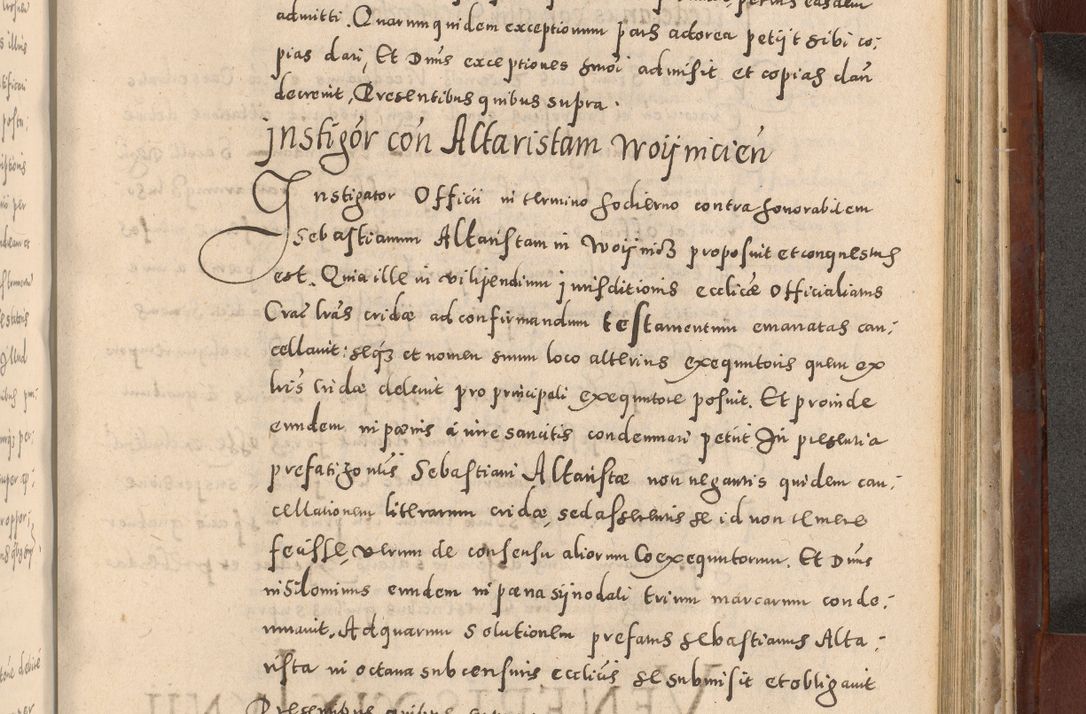 admitti. Quarum quidem exceptionum pars actorea petijt sibi co:
pias dari, Et Dnus exceptiones hmoi admisit et copias dari
decrevit, Presentibus quibus supra.
Instigor con Altaristam Woijnicien
Instigator Officii in termino hodierno contra honorabilem
Sebastianum Altaristam in Woijnicz proposuit et conquestus
est. Quia ille in vilipendium jurisditionis ecclicae Officialiatus
Crac lras cridae ad confirmandum testamentum emanatas can:
cellavit: seq3 et nomen suum loco alterius exequutoris quem ex
lris cridae delevit pro principali exequutore posuit. Et proinde
eundem in poenis a iure sancitis condemnari petiit In presentia
prefati honlis Sebastiani Altaristae non negantis quidem can:
cellationem literarum cridae, sed asserentis se id non temere
fecisse, verum de consensu aliorum Coexequutorum. Et Dnus
nihilominus eundem in poena sijnodali trium marcarum conde:
mnavit. Ad quarum solutionem prefatus Sebastianus Alta:
rista in octava sub censuris ecclicis se submisit et obligavit
Presentibus quibus supra